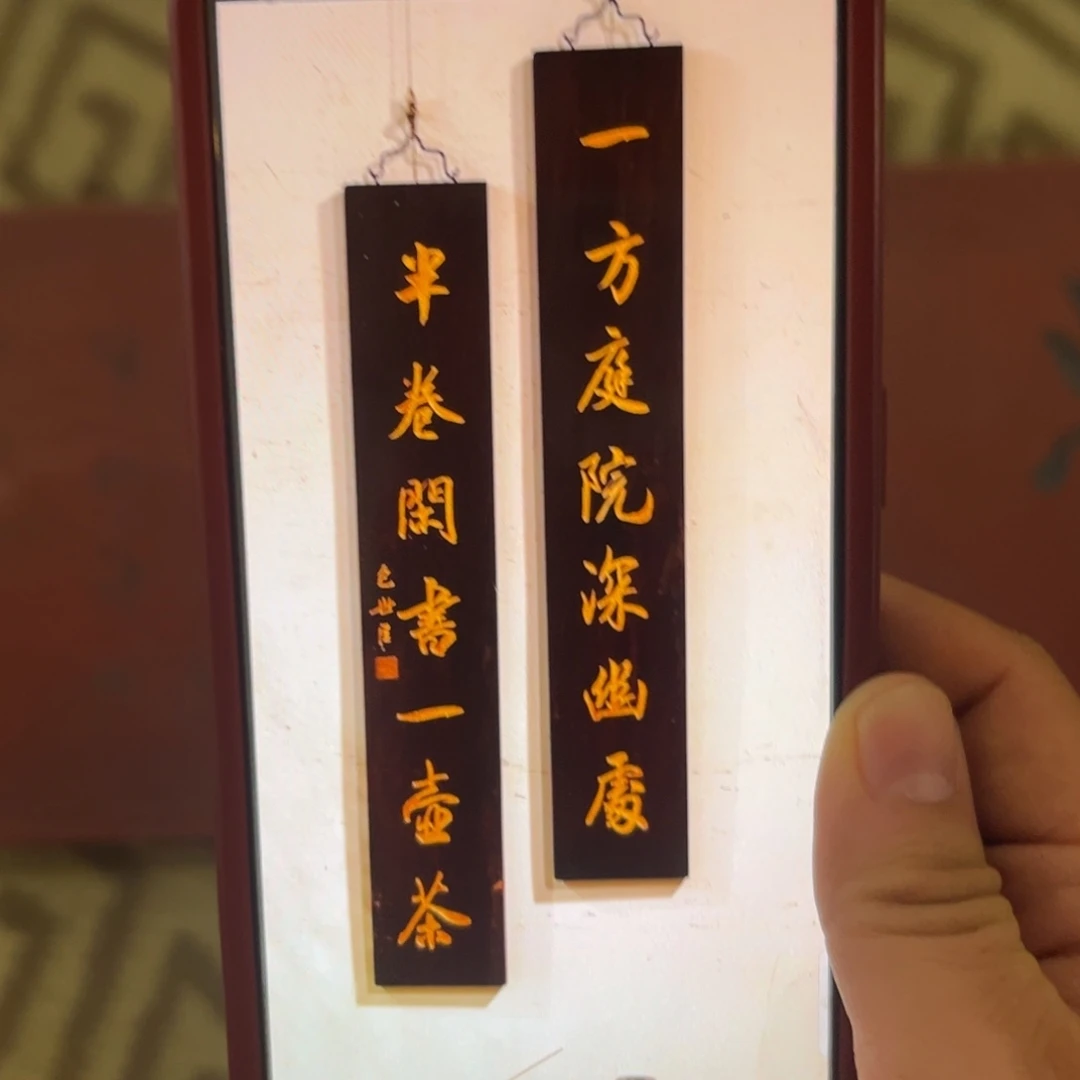 一方庭院深幽處
半卷閑書一壺茶
包世臣